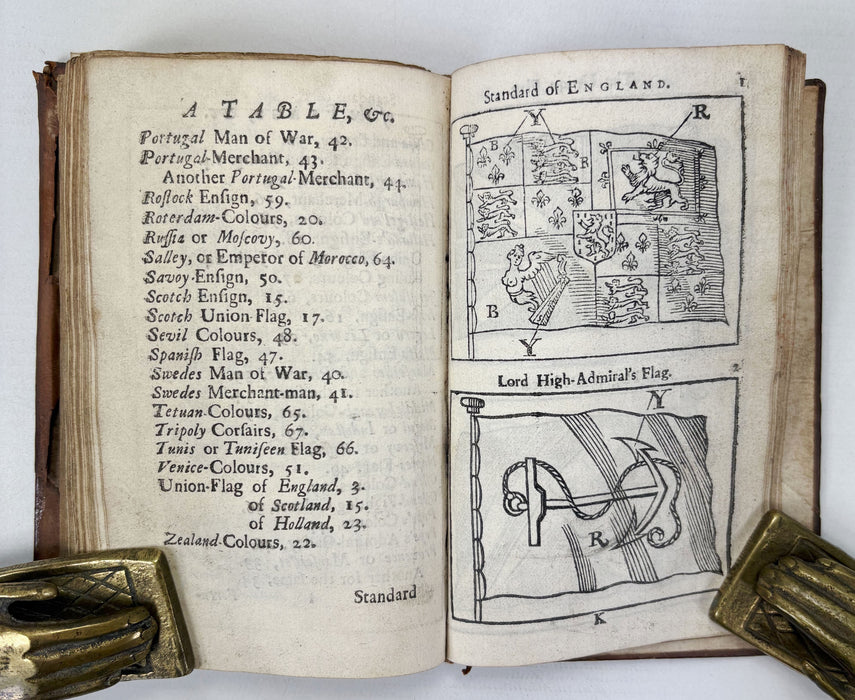 A TABLE, &c.
Portugal Man of War, 42.
Portugal-Merchant, 43.
Another Portugal-Merchant, 44.
Roſtock Enſign, 59.
Roterdam-Colours, 20.
Ruſſia or Moſcovy, 60.
Salley, or Emperor of Morocco, 64.
Savoy-Enſign, 50.
Scotch Enſign, 15.
Scotch Union Flag, 17.
Sevil Colours, 48.
Spaniſh Flag, 47.
Swedes Man of War, 40.
Swedes Merchant-man, 41.
Tetuan-Colours, 65.
Tripoly Corſairs, 67.
Tunis or Tuniſeen Flag, 66.
Venice-Colours, 51.
Union-Flag of England, 3.
of Scotland, 15.
of Holland, 23.
Zealand-Colours, 22.
Standard
Standard of ENGLAND.
1
Y
R
B
R
B
Y
Lord High-Admiral's Flag.
2
Y
R
K